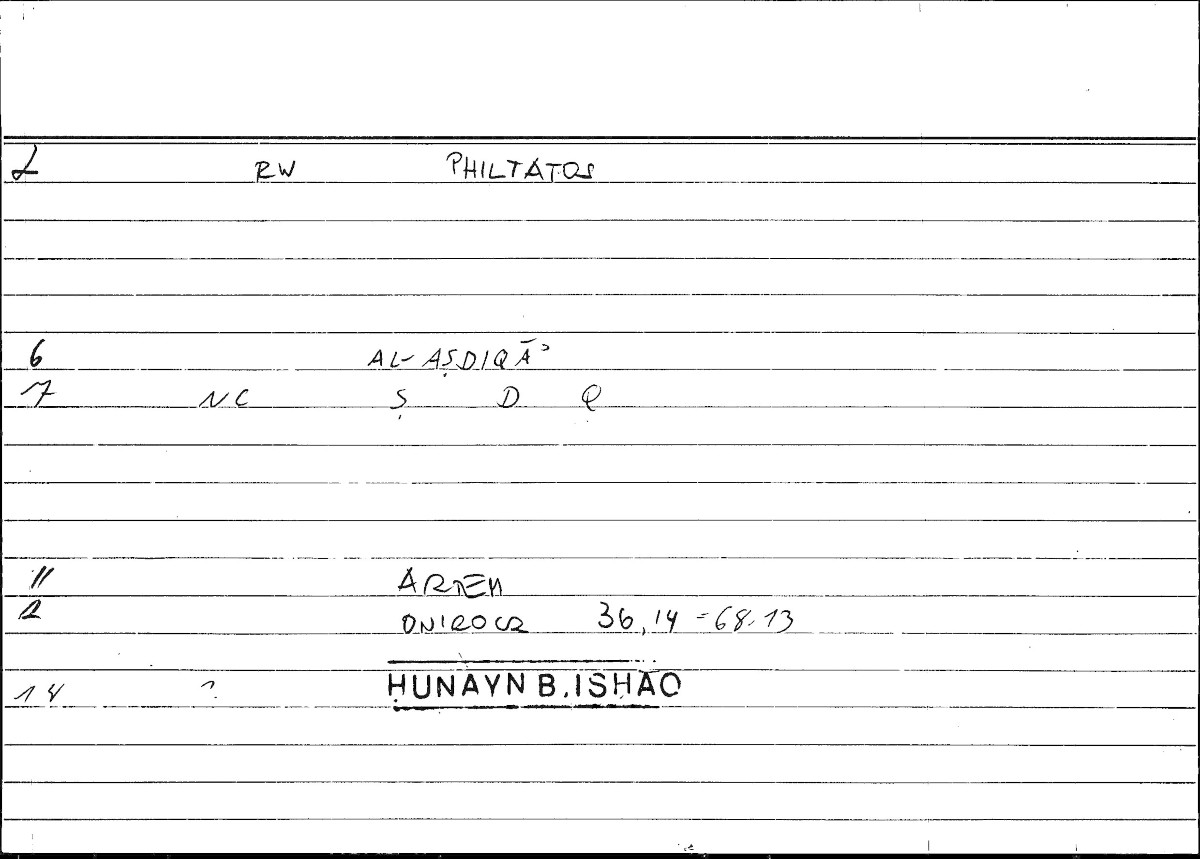 2 RW PHILTATOS
6 AL-AṢDIQĀʾ
7 NC Ṣ D Q
11 ARTEM
12 ONIROCR 36,14 = 68.13
14 ? ḤUNAYN B. ISḤAQ